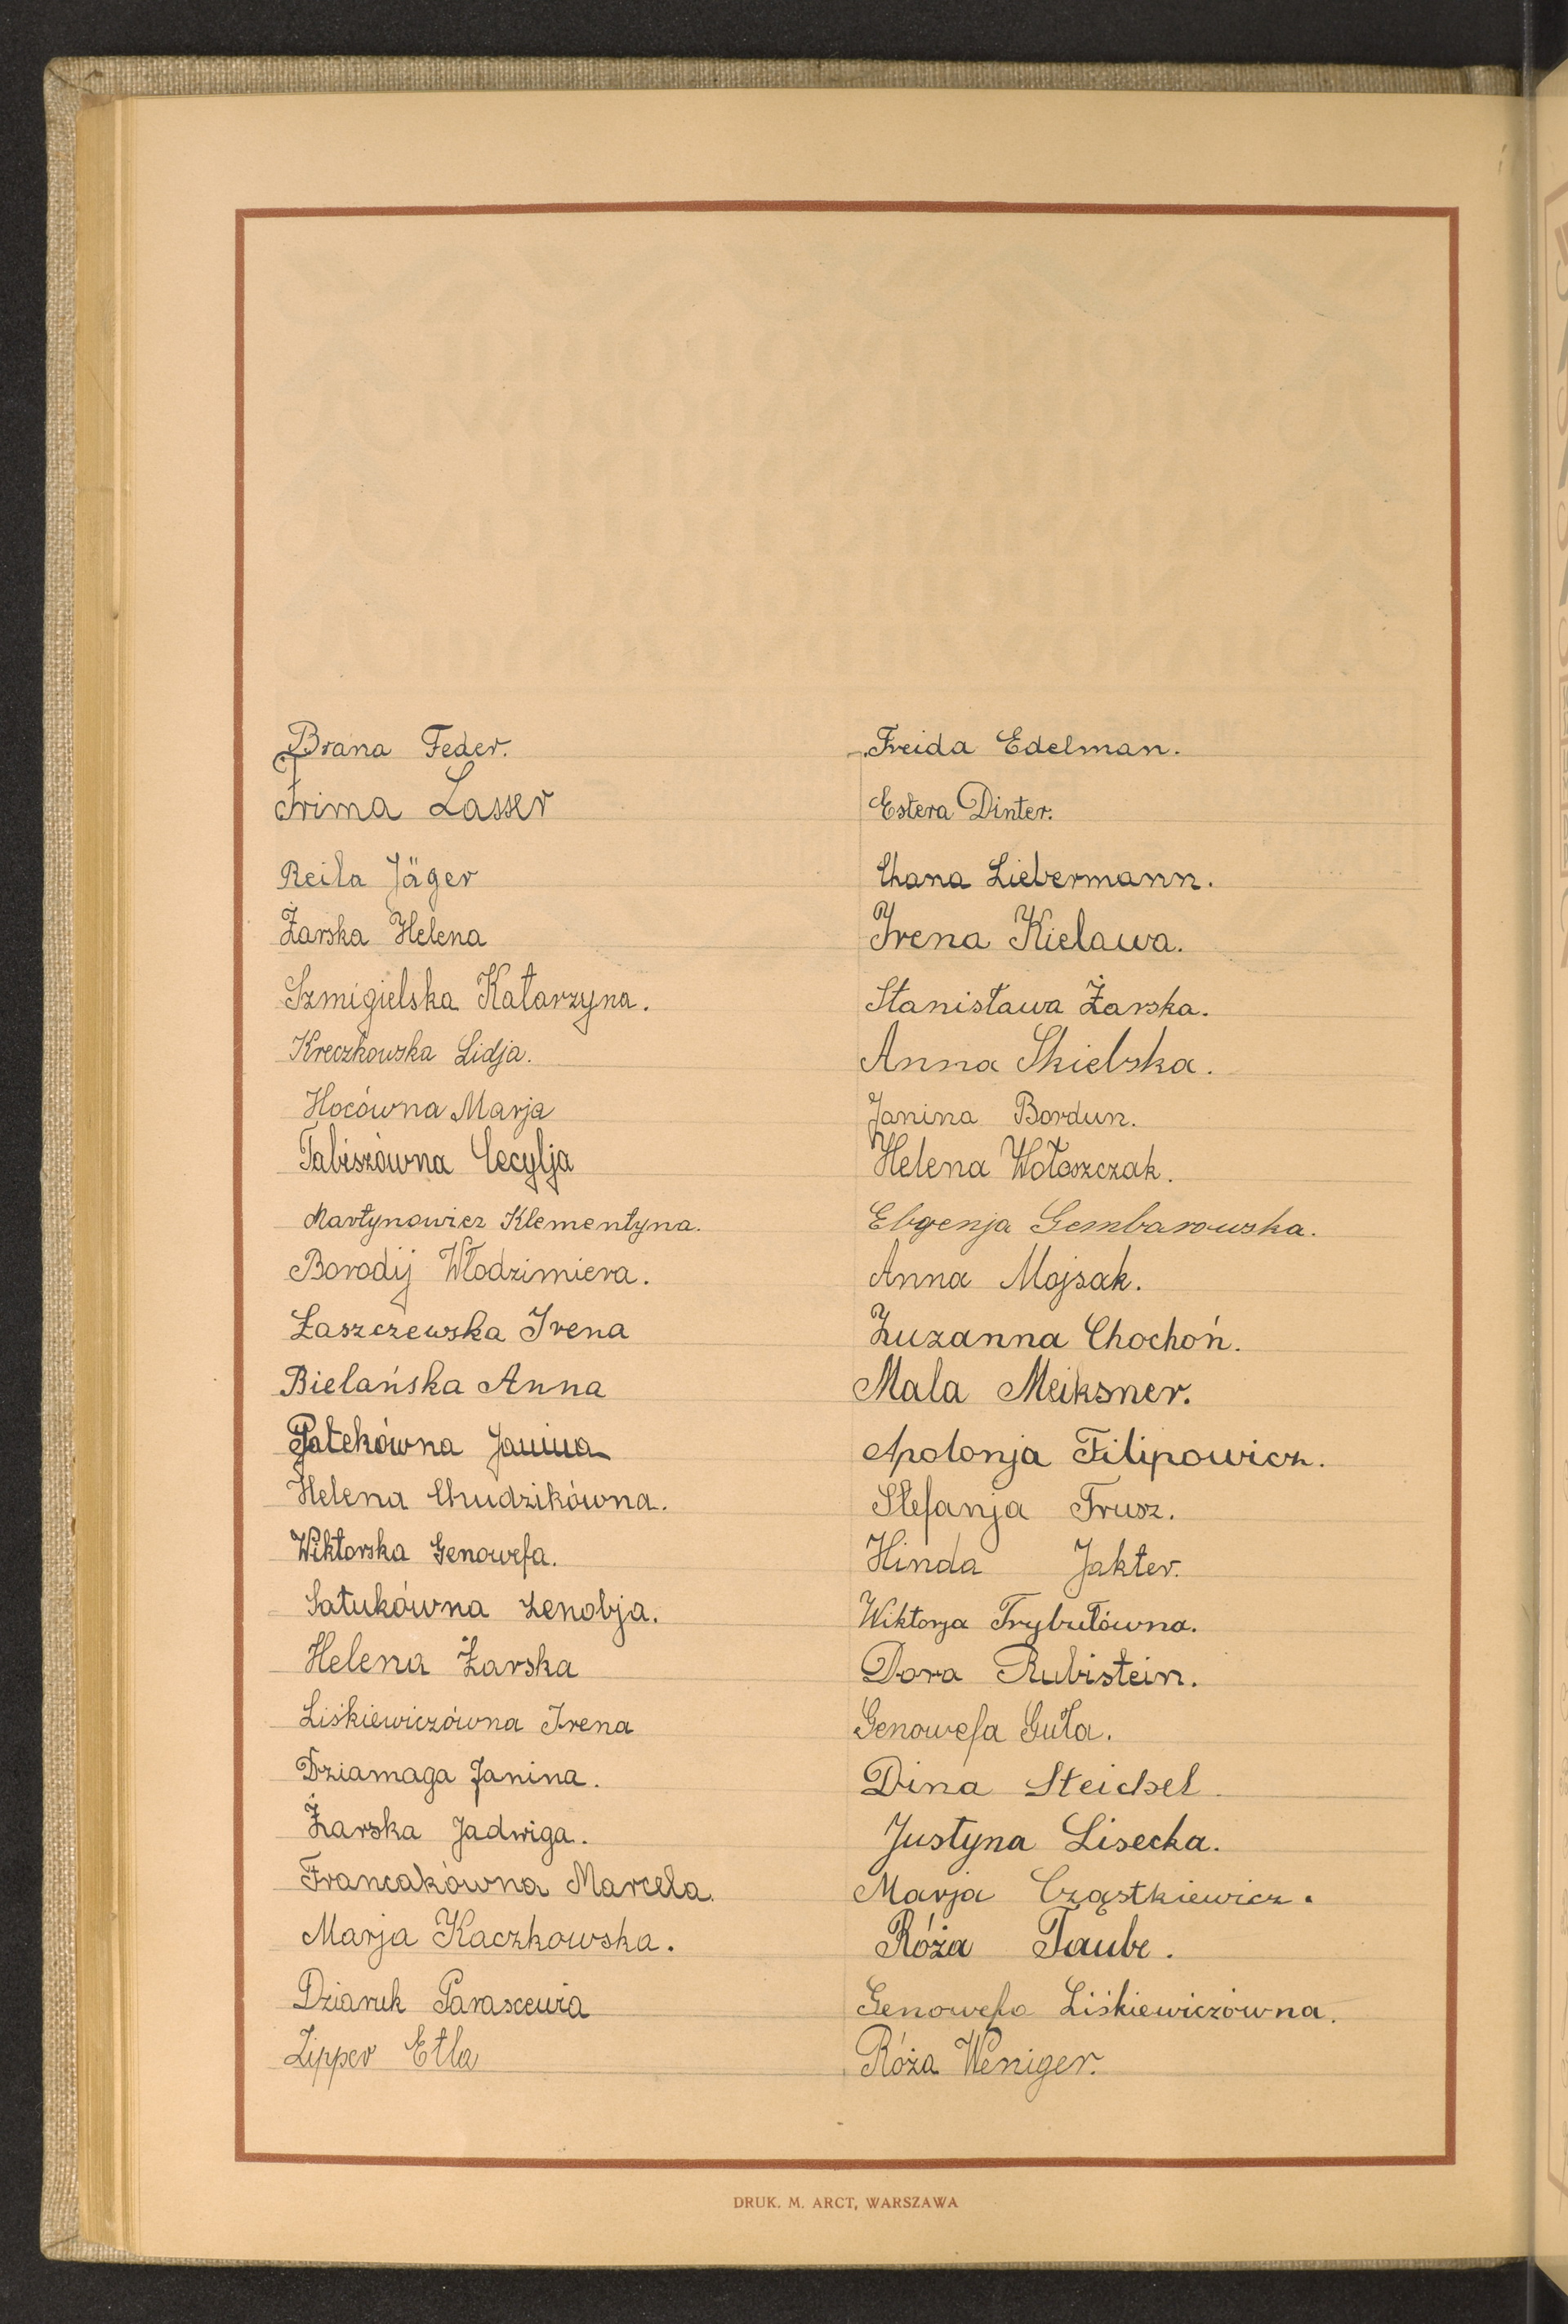 Brana Feder.
Frima Lasser
Reila Jäger
Żarska Helena
Szmigielska Katarzyna.
Kreczkowska Lidja.
Hocówna Marja
Tabiszówna Cecylja
Martynowicz Klementyna.
Borodij Włodzimiera.
Łaszczewska Irena
Bielańska Anna
Patekówna Janina
Helena Chudzikówna.
Wiktorska Genowefa.
Satukówna Zenobja.
Helena Żarska
Liśkiewiczówna Irena
Dziamaga Janina.
Żarska Jadwiga.
Francakówna Marcela.
Marja Kaczkowska.
Dziaruk Parascewia
Lipper Etla
Freida Edelman.
Estera Dinter.
Chana Liebermann.
Irena Kielawa.
Stanisława Żarska.
Anna Skielska.
Janina Bordun.
Helena Wołoszczak.
Ebgenja Gembarowska.
Anna Mojsak.
Zuzanna Chochoń.
Mala Meiksner.
Apolonja Filipowicz.
Stefanja Trusz.
Hinda Jakter.
Wiktorja Trybułówna.
Dora Rubistein.
Genowefa Guła.
Dina Steichel.
Justyna Lisecka.
Marja Cząstkiewicz.
Róża Taube.
Genowefa Liśkiewiczówna.
Róża Weniger.
DRUK. M. ARCT, WARSZAWA